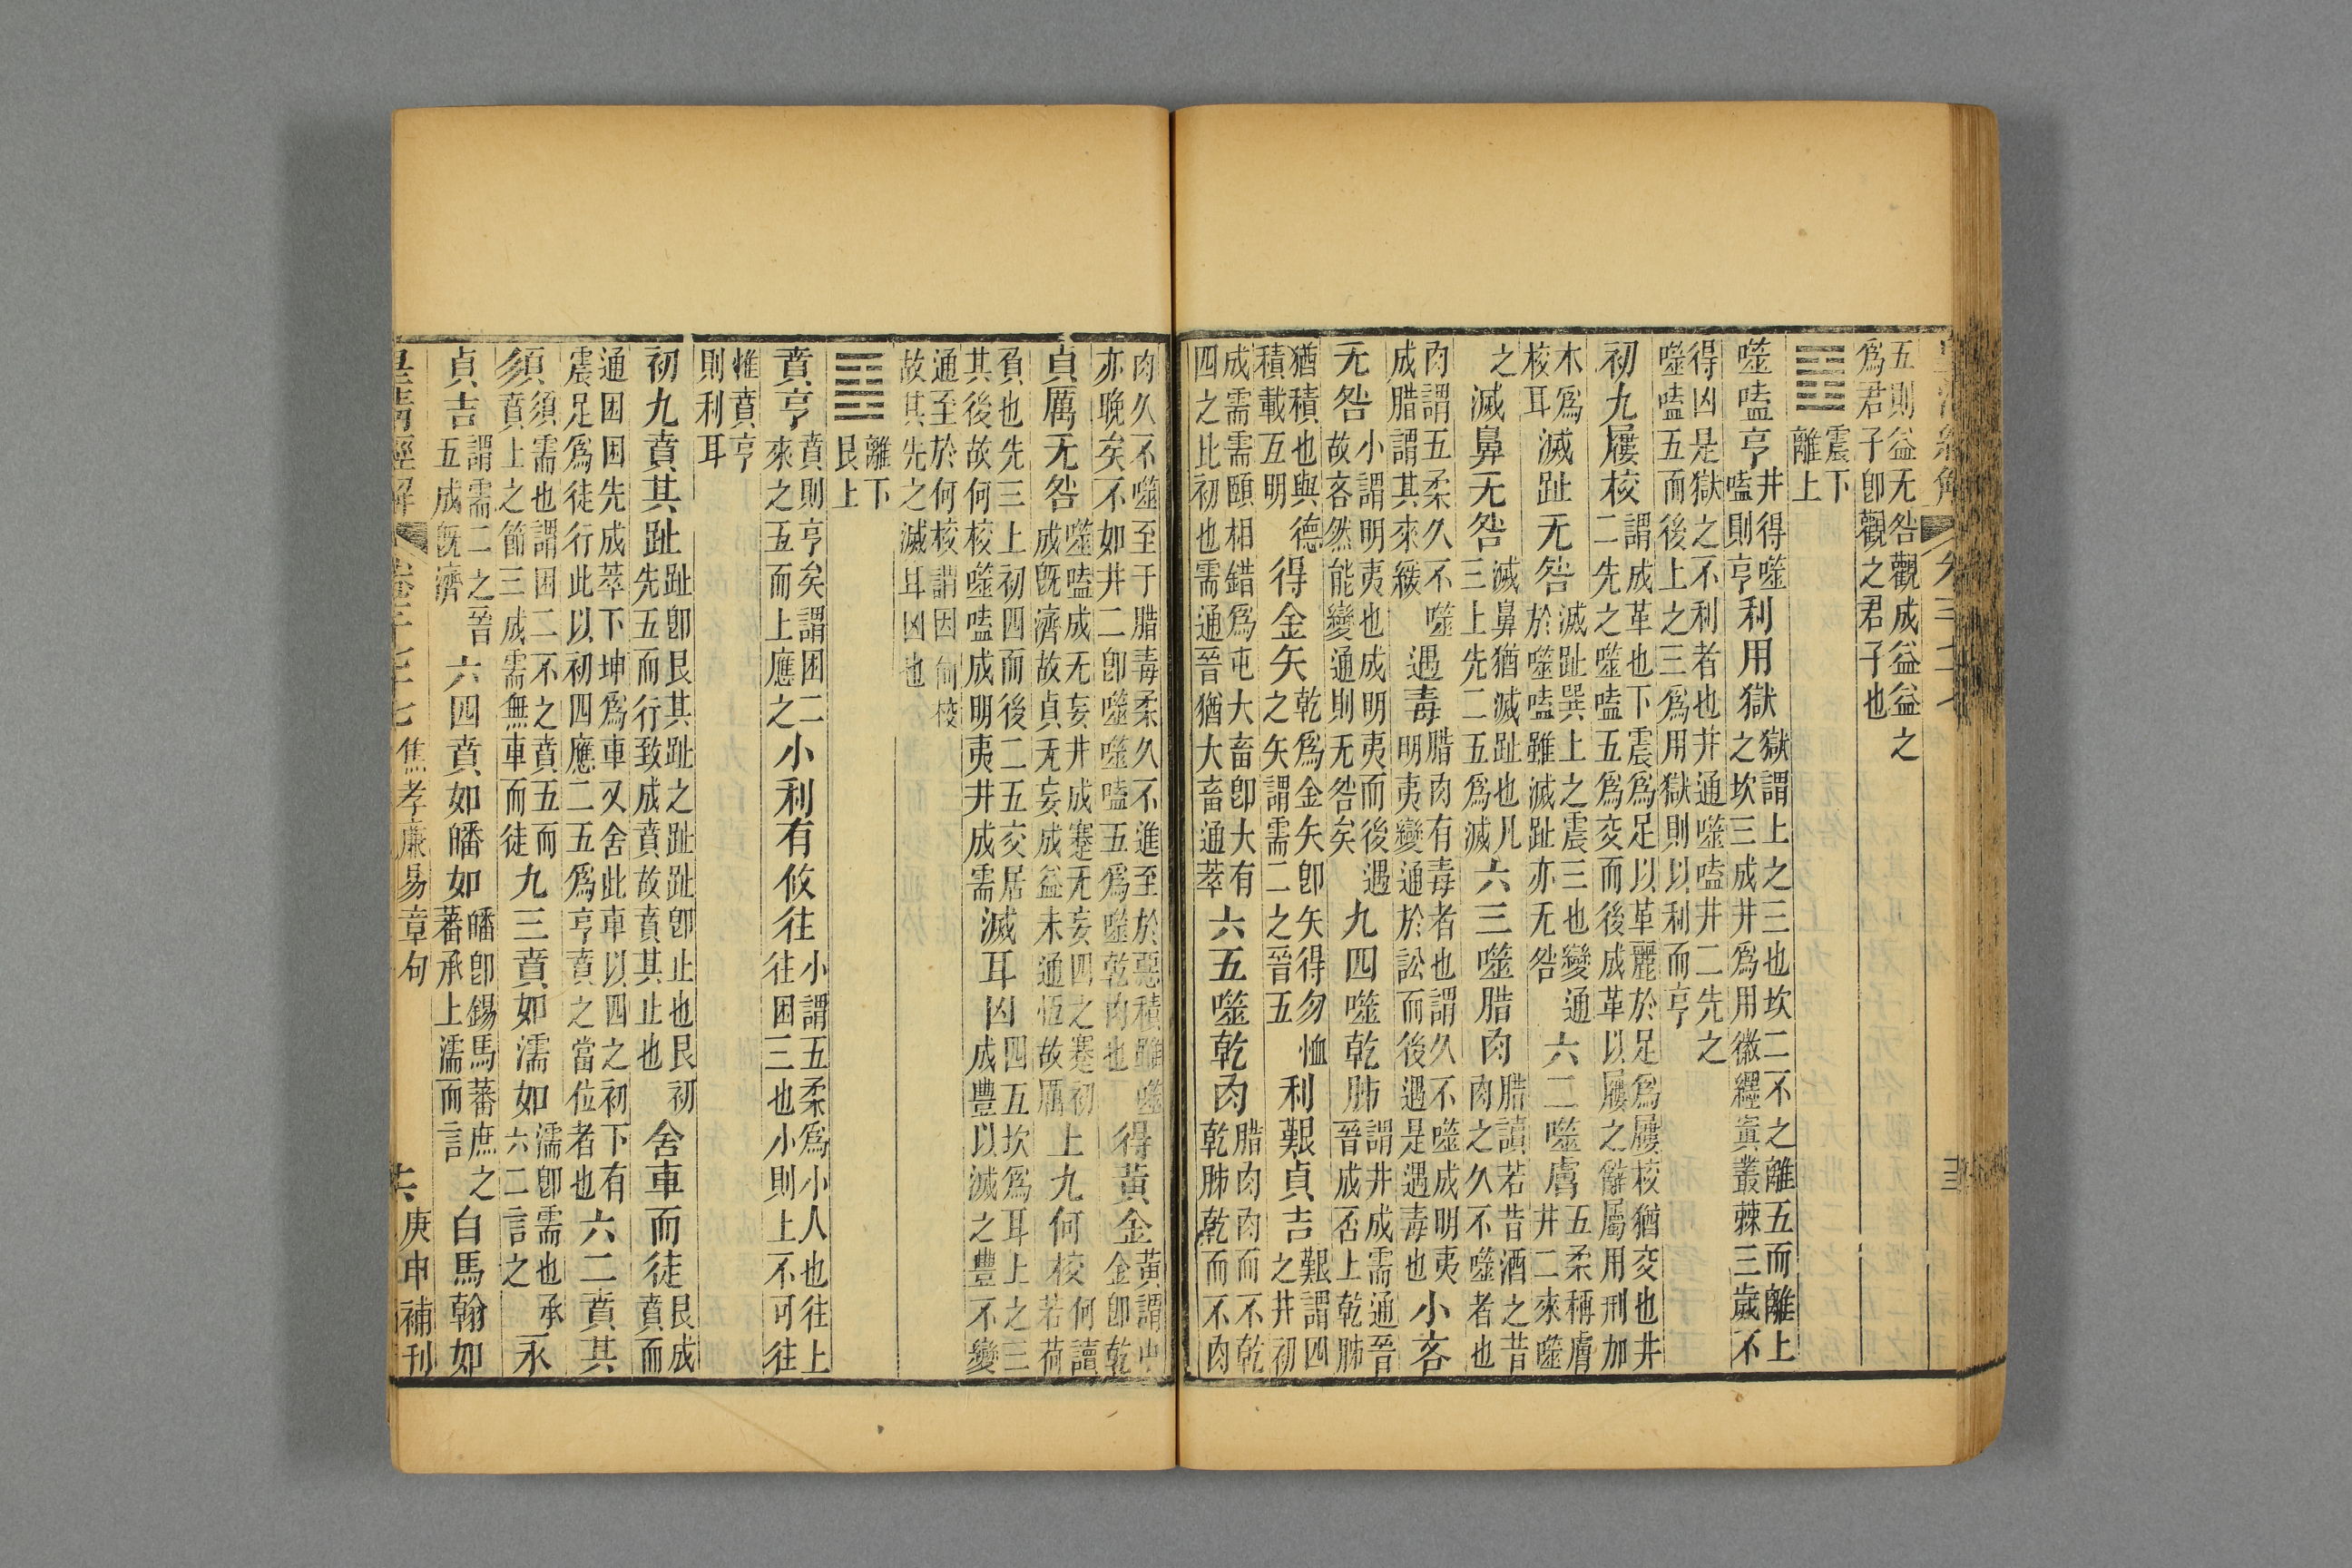 五則益无咎觀成益益之
爲君子卽觀之君子也
䷔
震下
離上
噬嗑亨
井得噬
嗑則亨
利用獄
獄謂上之三也坎二不之離五而離上
之坎三成井爲用徽纆寘叢棘三歲不
得凶是獄之不利者也井通噬嗑井二先之
噬嗑五而後上之三爲用獄則以利而亨
初九屨校
謂成革也下震爲足以革麗於足爲屨校猶交也井
二先之噬嗑五爲交而後成革以屨之離屬用刑加
木爲
校耳
滅趾无咎
滅趾巽上之震三也變通
於噬嗑雖滅趾亦无咎
六二噬膚
五柔稱膚
井二來噬
之
滅鼻无咎
滅鼻猶滅趾也凡
三上先二五爲滅
六三噬腊肉
腊讀若昔酒之昔
肉之久不噬者也
肉謂五柔久不噬
成腊謂其來緩
遇毒
腊肉有毒者也謂久不噬成明夷
明夷變通於訟而後遇是遇毒也
小吝
无咎
小謂明夷也成明夷而後遇
故吝然能變通則无咎矣
九四噬乾胏
謂井成需通晉
晉成否上乾胏
猶積也與德
積載互明
得金矢
乾爲金矢卽矢得勿恤
之矢謂需二之晉五
利艱貞吉
艱謂四
之井初
成需需頤相錯爲屯大畜卽大有
四之比初也需通晉猶大畜通萃
六五噬乾肉
腊肉肉而不乾
乾胏乾而不肉
肉久不噬至于腊毒柔久不進至於惡積雖噬
亦晚矣不如井二卽噬噬嗑五爲噬乾肉也
得黃金
黃謂中
金卽乾
貞厲无咎
噬嗑成无妄井成蹇无妄四之蹇初
成旣濟故貞无妄成益未通恆故厲
上九何校
何讀
若荷
負也先三上初四而後二五交居
其後故何校噬嗑成明夷井成需
滅耳凶
四五坎爲耳上之三
成豐以滅之豐不變
通至於何校謂因何校
故其先之滅耳凶也
䷕
離下
艮上
賁亨
賁則亨矣謂困二
來之五而上應之
小利有攸往
小謂五柔爲小人也往上
往困三也小則上不可往
惟賁亨
則利耳
初九賁其趾
趾卽艮其趾之趾趾卽止也艮初
先五而行致成賁故賁其止也
舍車而徒
艮成
賁而
通困困先成萃下坤爲車又舍此車以四之初下有
震足爲徒行此以初四應二五爲亨賁之當位者也
六二賁其
須
須需也謂困二不之賁五而
賁上之節三成需無車而徒
九三賁如濡如
濡卽需也承
六二言之
永
貞吉
謂需二之晉
五成旣濟
六四賁如皤如
皤卽錫馬蕃庶之
蕃承上濡而言
白馬翰如
皇淸經解
卷千二十七
焦孝廉易章句
庚申補刊